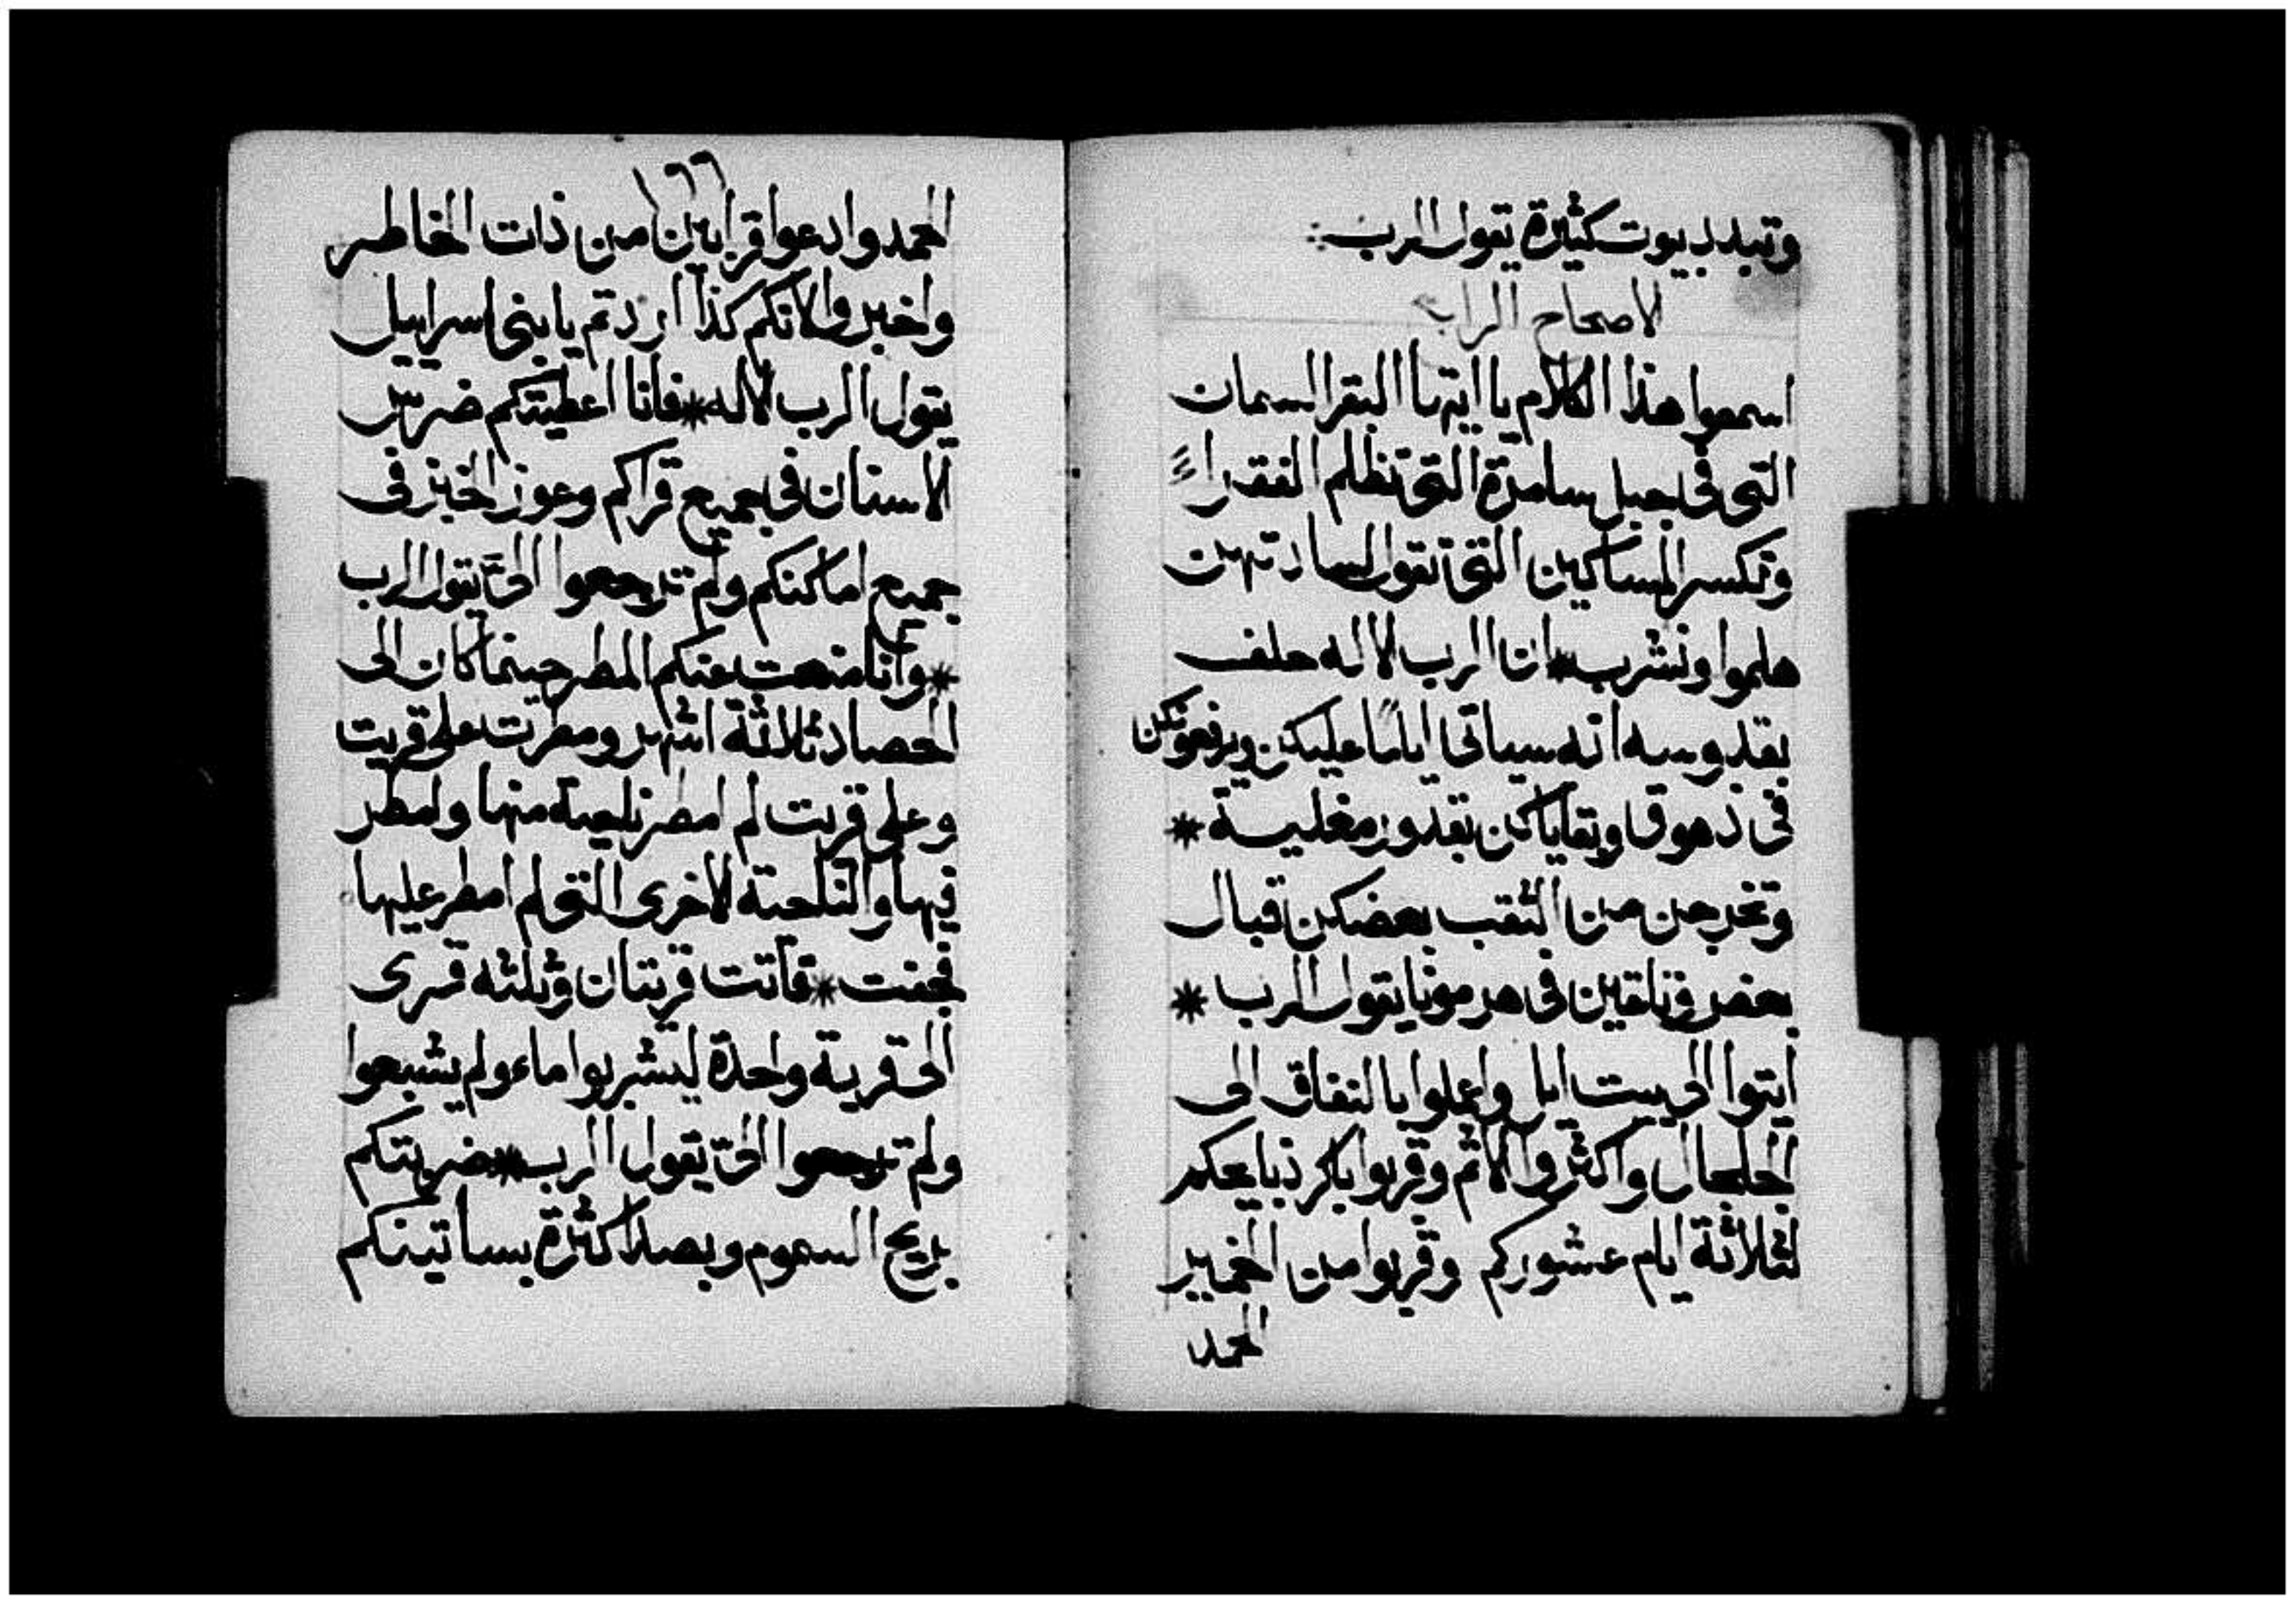 وتبدد بيوت كثيرة يقول الرب
الاصحاح الرابع
اسمعوا هذا الكلام يا ايتها البقر السمان
التى فى جبل سامرة التى تظلم الفقراء
وتكسر المساكين التى تقول لسادتهن
هلموا ونشرب * ان الرب الاله حلف
بقدوسه انه سياتى اياما عليكن ويرفعونكن
فى دهوق وبقاياكن بقدور مغلية *
وتخرجن من الثقب بعضكن قبال
بعض وتلقين فى هرمونا يقول الرب *
ايتوا الى بيت ايل واعملوا بالنفاق الى
الجلجال واكثروا الاثم وقربوا باكر ذبايحكم
لثلاثة ايام عشوركم وقربوا من الخمير
الحمد
١٦٦
الحمد وادعوا قرابين من ذات الخاطر
واخبروا لانكم كذا اردتم يا بنى اسراييل
يقول الرب الاله * فانا اعطيتكم ضرس
الاسنان فى جميع قراكم وعوز الخبز فى
جميع اماكنكم ولم ترجعوا الىّ يقول الرب
* وانا منعت عنكم المطر حينما كان الى
الحصاد ثلاثة اشهر ومطرت على قريت
وعلى قريت لم امطر ناحية منها وامطر
فيها والناحية الاخرى التى لم امطر عليها
فجفت * فاتت قريتان وثلثه قرى
الى قرية واحدة ليشربوا ماء ولم يشبعوا
ولم ترجعوا الىّ يقول الرب * ضربتكم
بريح السموم وبصدا كثرة بساتينكم